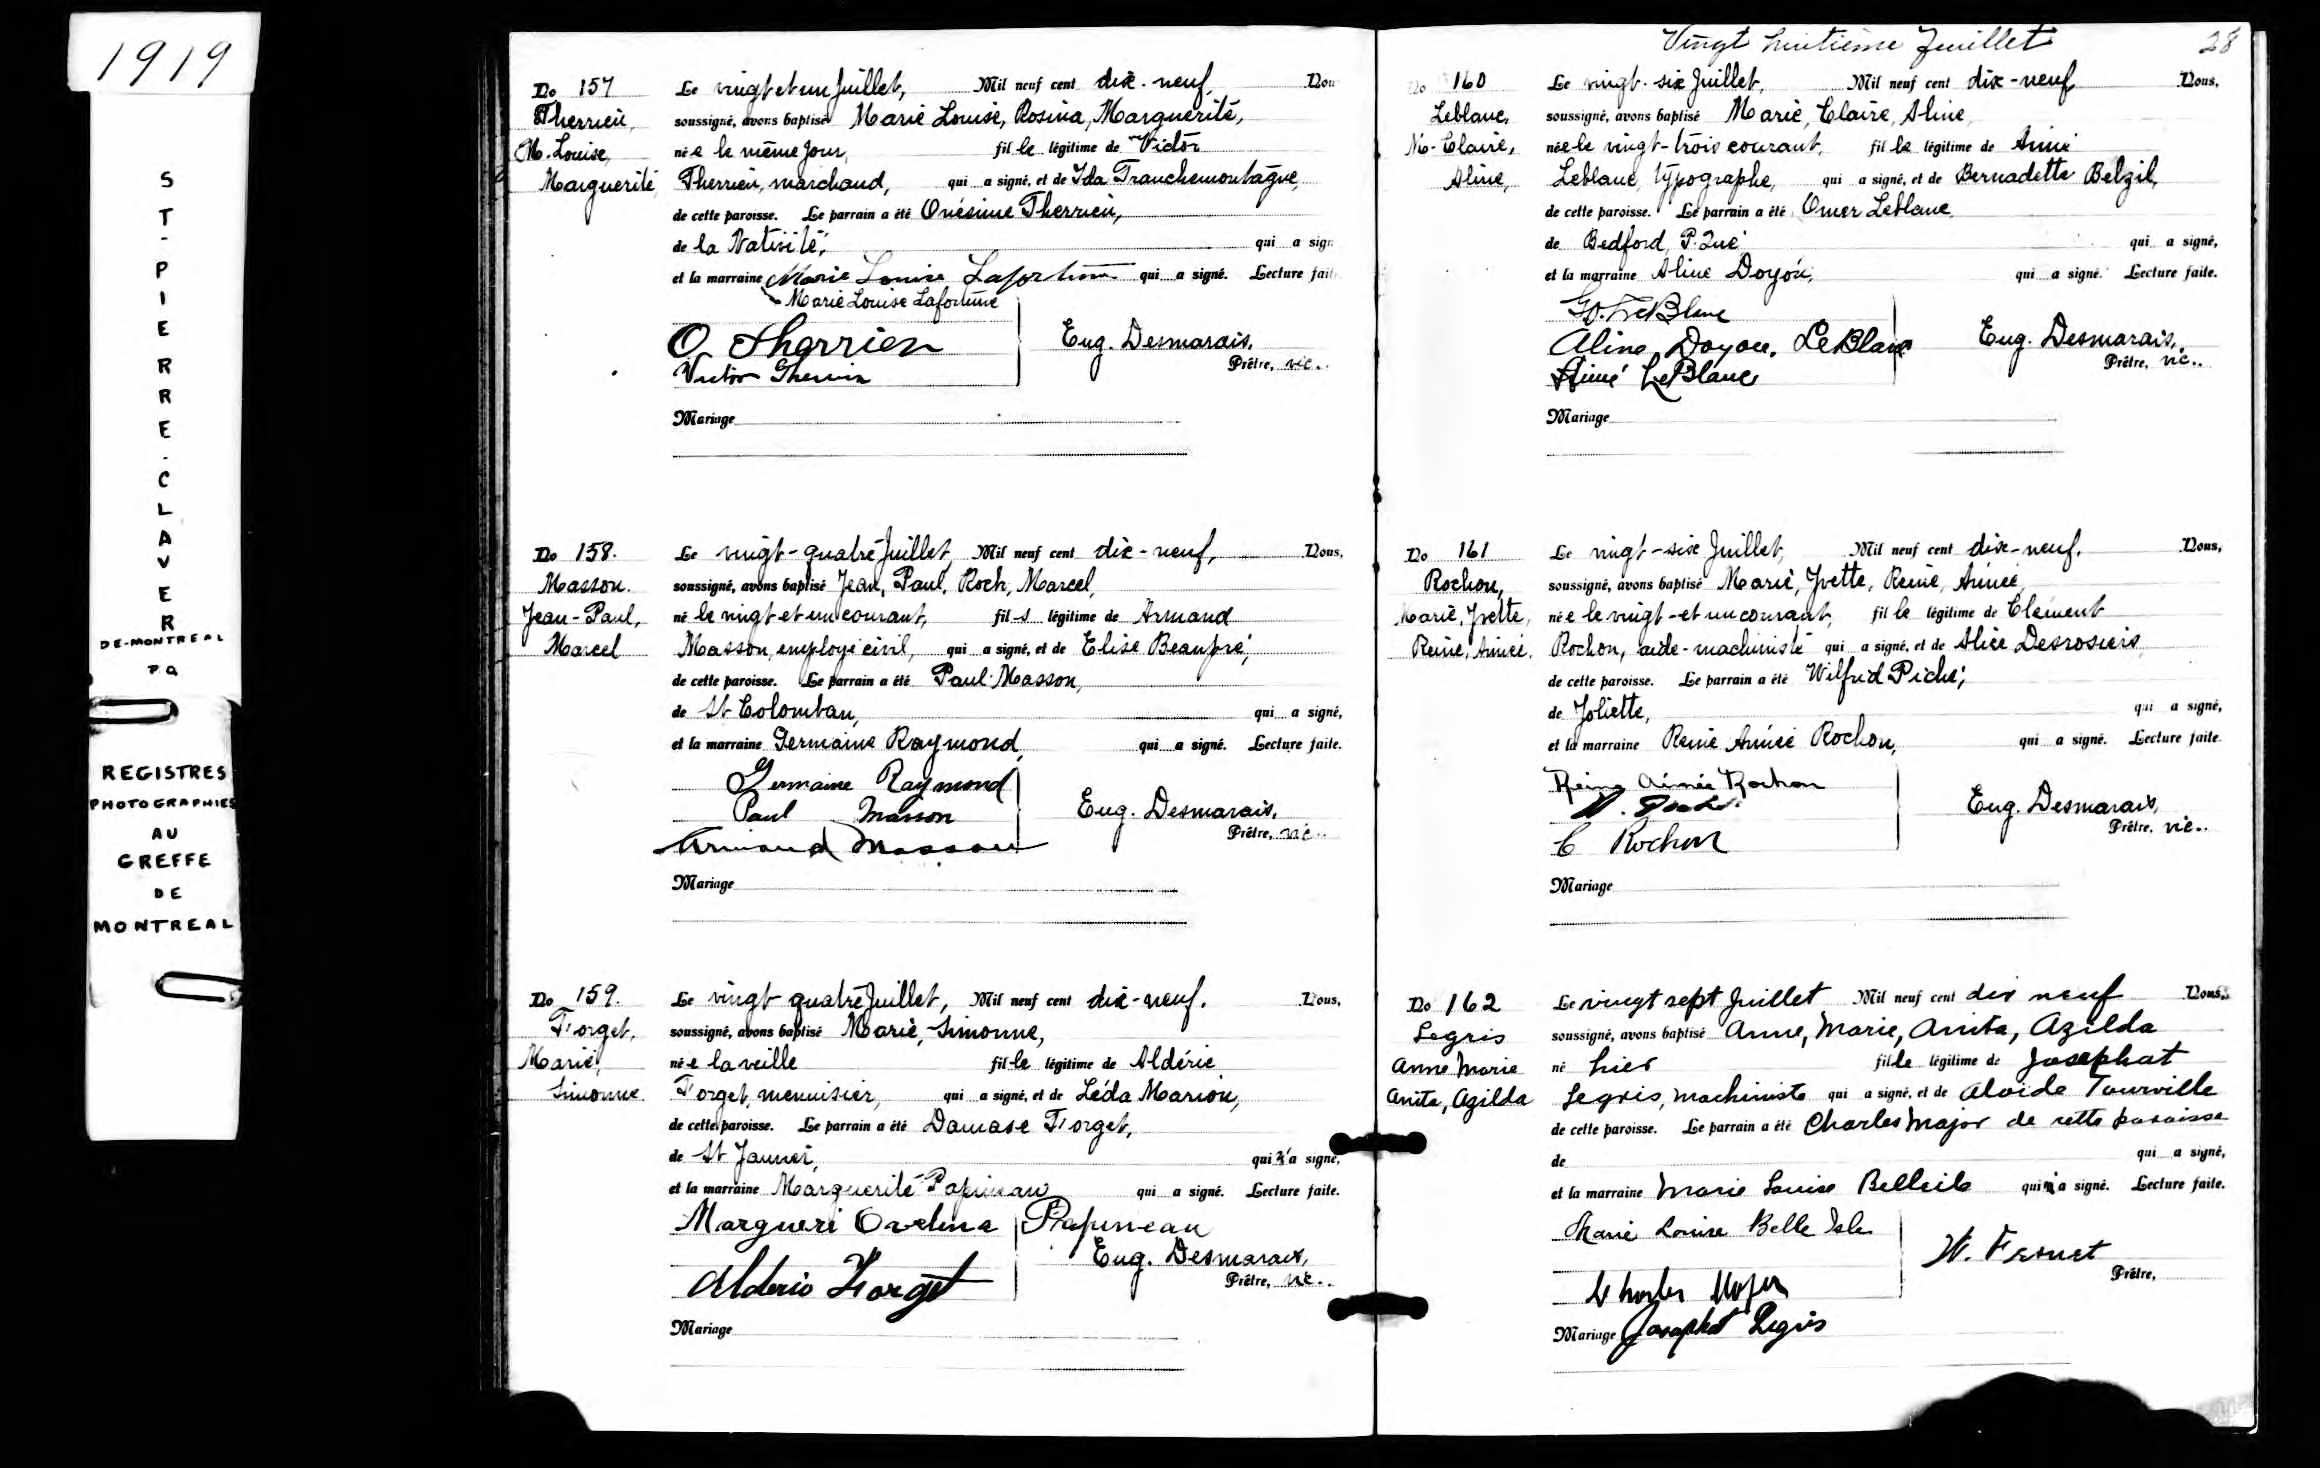 1919
ST-PIERRE-CLAVER
DE-MONTREAL
P Q
REGISTRES
PHOTOGRAPHIES
AU
GREFFE
DE
MONTREAL
No 157
Therrien,
M. Louise,
Marguerite
Le vingt et un Juillet, Mil neuf cent dix-neuf, Nou
soussigné, avons baptisé Marie Louise, Rosina, Marguerite,
née le même jour, fille légitime de Victor
Therrien, marchand, qui a signé, et de Ida Tranchemontagne,
de cette paroisse. Le parrain a été Onésime Therrien,
de la Nativité, qui a sign
et la marraine Marie Louise Lafortune qui a signé. Lecture fait
Marie Louise Lafortune
O. Therrien
Victor Therrien
Eug. Desmarais,
Prêtre, vic..
Mariage
No 158.
Masson.
Jean-Paul,
Marcel
Le vingt-quatre Juillet, Mil neuf cent dix-neuf, Nous,
soussigné, avons baptisé Jean, Paul, Roch, Marcel,
né le vingt et un courant, fils légitime de Armand
Masson, employé civil, qui a signé, et de Elise Beaupré,
de cette paroisse. Le parrain a été Paul Masson,
de St Colomban, qui a signé,
et la marraine Germaine Raymond, qui a signé. Lecture faite.
Germaine Raymond
Paul Masson
Armand Masson
Eug. Desmarais,
Prêtre, vic..
Mariage
No 159.
Forget,
Marie,
Simonne.
Le vingt quatre Juillet, Mil neuf cent dix-neuf. Nous,
soussigné, avons baptisé Marie, Simonne,
née la veille fille légitime de Aldéric
Forget, menuisier, qui a signé, et de Léda Marion,
de cette paroisse. Le parrain a été Damase Forget,
de St Janvier, qui n'a signé,
et la marraine Marguerite Papineau qui a signé. Lecture faite.
Margueri Ovelina Papineau
Alderic Forget
Eug. Desmarais,
Prêtre, vic..
Mariage
Vingt huitième feuillet 28
No 160
Leblanc,
M-Claire,
Aline,
Le vingt-six Juillet, Mil neuf cent dix-neuf Nous,
soussigné, avons baptisé Marie, Claire, Aline,
née le vingt-trois courant, fille légitime de Aimé
Leblanc, typographe, qui a signé, et de Bernadette Belzil,
de cette paroisse. Le parrain a été Omer Leblanc,
de Bedford, P. Qué qui a signé,
et la marraine Aline Doyon, qui a signé. Lecture faite.
LeBlanc
Aline Doyon. LeBlanc
Aimé LeBlanc
Eug. Desmarais,
Prêtre, vic..
Mariage
No 161
Rochon,
Marie, Yvette,
Reine, Aimée.
Le vingt-six Juillet, Mil neuf cent dix-neuf. Nous,
soussigné, avons baptisé Marie, Yvette, Reine, Aimée,
née le vingt-et un courant, fille légitime de Clement
Rochon, aide-machiniste qui a signé, et de Alice Desrosiers,
de cette paroisse. Le parrain a été Wilfrid Piché,
de Joliette, qui a signé,
et la marraine Reine Aimée Rochon, qui a signé. Lecture faite.
Reine Aimée Rochon
C Rochon
Eug. Desmarais,
Prêtre, vic..
Mariage
No 162
Legris
Anne Marie
Anita, Azilda
Le vingt sept Juillet Mil neuf cent dix neuf Nous,
soussigné, avons baptisé Anne, Marie, Anita, Azilda
né hier fille légitime de Josephat
Legris, machiniste qui a signé, et de Aloida Tourville
de cette paroisse. Le parrain a été Charles Major de cette paroisse
de qui a signé,
et la marraine Marie Louise Belleile qui a signé. Lecture faite.
Marie Louise Belle Isle
Charles Major
Josaphat Legris
Prêtre,
Mariage